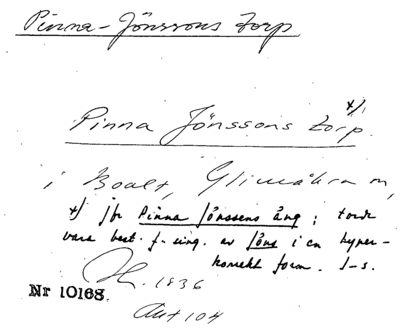 Pinna-Jönssons torp
x/.
Pinna Jönssons torp.
i Boalt, Glimåkra sn,
x/ jfr Pinna Jönssens äng; torde
vara best. f. sing. av Jöns i en hyper-
korrekt form. I-s.
1936
Nr 10168.
104